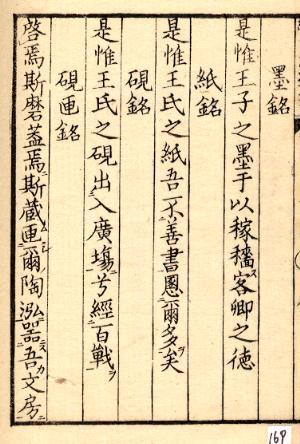 墨銘
是惟王子之墨于以稼穡客卿之德
紙銘
是惟王氏之紙吾不善書慁爾多矣
硯銘
是惟王氏之硯出入廣場兮經百戰
硯匣銘
啓焉斯磨蓋焉斯藏匣爾陶泓器吾文房
169